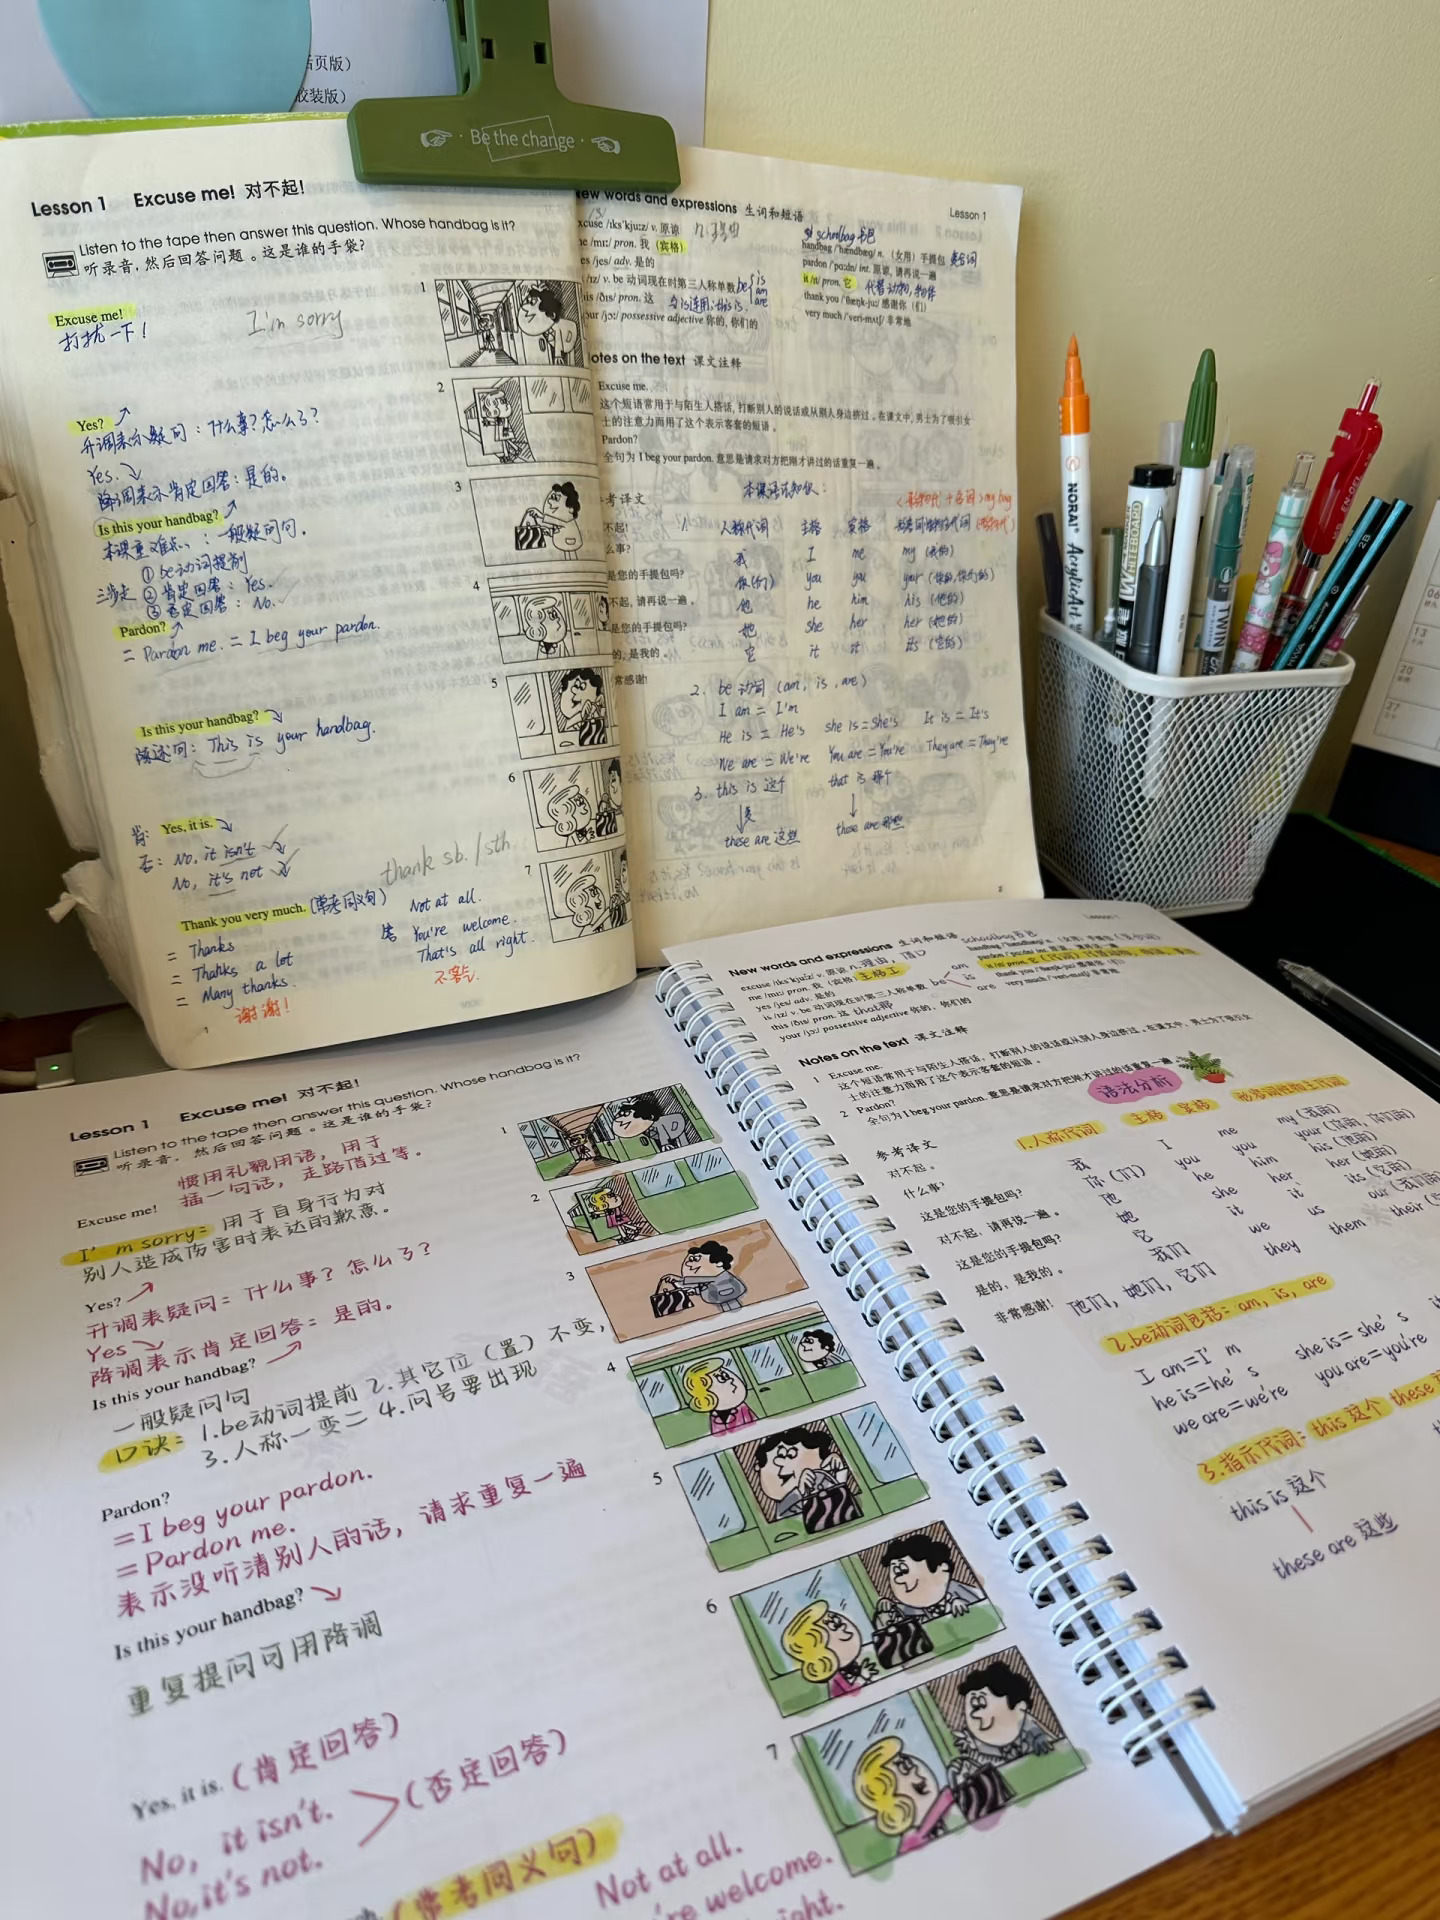 舌页版）
胶装版）
· Be the change ·
Lesson 1 Excuse me! 对不起!
Listen to the tape then answer this question. Whose handbag is it?
听录音，然后回答问题。这是谁的手袋?
Excuse me!
打扰一下!
I'm sorry
Yes?
升调表示疑问：什么事？怎么了？
Yes.
降调表示肯定回答：是的。
Is this your handbag?
本课重难点：一般疑问句.
① be动词提前
三步走 ② 肯定回答：Yes.
③ 否定回答：No.
Pardon?
= Pardon me. = I beg your pardon.
Is this your handbag?
陈述句：This is your handbag.
肯: Yes, it is.
否: No, it isn't
No, it's not
thank sb./sth.
Thank you very much. (常考同义句)
= Thanks
= Thanks a lot
= Many thanks.
谢谢!
Not at all.
答 You're welcome.
That's all right.
不客气.
1
1
2
3
4
5
6
7
ew words and expressions 生词和短语
Lesson 1
xcuse /ɪks'kjuːz/ v. 原谅
me /miː/ pron. 我（宾格）
es /jes/ adv. 是的
/ɪz/ v. be 动词现在时第三人称单数 be { is am are
his /ðɪs/ pron. 这 与is连用:this is.
our /jɔː/ possessive adjective 你的，你们的
schoolbag 书包
handbag /'hændbæg/ n.（女用）手提包 复合词
pardon /'pɑːdn/ int. 原谅，请再说一遍
it /ɪt/ pron. 它 代替动物,物体
thank you /'θæŋk-juː/ 感谢你（们）
very much /'veri-mʌtʃ/ 非常地
otes on the text 课文注释
Excuse me.
这个短语常用于与陌生人搭话，打断别人的说话或从别人身边挤过。在课文中，男士为了吸引女
士的注意力而用了这个表示客套的短语。
Pardon?
全句为 I beg your pardon. 意思是请求对方把刚才讲过的话重复一遍。
考译文
不起!
么事?
是您的手提包吗?
不起，请再说一遍。
是您的手提包吗?
的，是我的。
常感谢!
本课语法知识：
1. 人称代词 主格 宾格
我 I me my (我的)
你(们) you you your (你的,你们的)
他 he him his (他的)
她 she her her (她的)
它 it it its (它的)
2. be 动词 (am, is, are)
I am = I'm
He is = He's she is = She's It is = It's
We are = We're You are = You're They are = They're
3. this is 这个 that is 那个
these are 这些 those are 那些
NORAI AcrylicArt
WHITEBOARD
TWIN
2B
06
13
20
27
Lesson 1 Excuse me! 对不起!
Listen to the tape then answer this question. Whose handbag is it?
听录音，然后回答问题。这是谁的手袋?
惯用礼貌用语，用于
插一句话，走路借过等。
Excuse me!
I'm sorry: 用于自身行为对
别人造成伤害时表达的歉意。
Yes?
升调表疑问：什么事？怎么了？
Yes
降调表示肯定回答：是的。
Is this your handbag?
一般疑问句
口诀：1.be动词提前 2.其它位（置）不变,
3.人称一变二 4.问号要出现
Pardon?
=I beg your pardon.
=Pardon me.
表示没听清别人的话，请求重复一遍
Is this your handbag?
重复提问可用降调
Yes, it is. (肯定回答)
No, it isn't.
No, it's not.
(否定回答)
(常考同义句)
Not at all.
're welcome.
ight.
1
2
3
4
5
6
7
Lesson 1
New words and expressions 生词和短语
excuse /ɪks'kjuːz/ v. 原谅 n.理由，借口
me /miː/ pron. 我（宾格） 主格I
yes /jes/ adv. 是的
is /ɪz/ v. be 动词现在时第三人称单数 be am is are
this /ðɪs/ pron. 这 that那
your /jɔː/ possessive adjective 你的，你们的
schoolbag 书包
handbag /'hændbæg/ n.（女用）手提包（复合词）
very much /'veri-mʌtʃ/ 非常地
Notes on the text 课文注释
1 Excuse me.
这个短语常用于与陌生人搭话，打断别人的说话或从别人身边挤过。在课文中，男士为了吸引女
士的注意力而用了这个表示客套的短语。
2 Pardon?
全句为 I beg your pardon. 意思是请求对方把刚才讲过的话重复一遍。
语法分析
参考译文
对不起。
什么事?
这是您的手提包吗?
对不起，请再说一遍。
这是您的手提包吗?
是的，是我的。
非常感谢!
1.人称代词 主格 宾格 形容词性物主代词
我 I me my (我的)
你(们) you you your (你的,你们的)
他 he him his (他的)
她 she her her (她的)
它 it it its (它的)
我们 we us our (我们的)
他们，她们，它们 they them their
2.be动词包括: am, is, are
I am=I'm she is=she's
he is=he's you are=you're
we are=we're
3.指示代词: this 这个 these
this is 这个
these are 这些